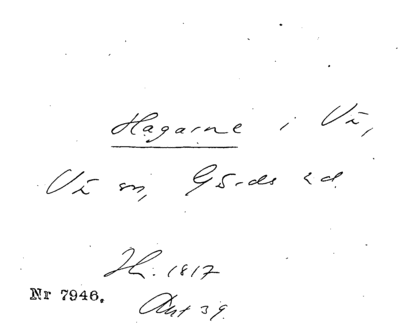 Hagarne i Vä,
Vä sn, Gärds hd
Hh. 1817
Nr 7946.
Akt 39.